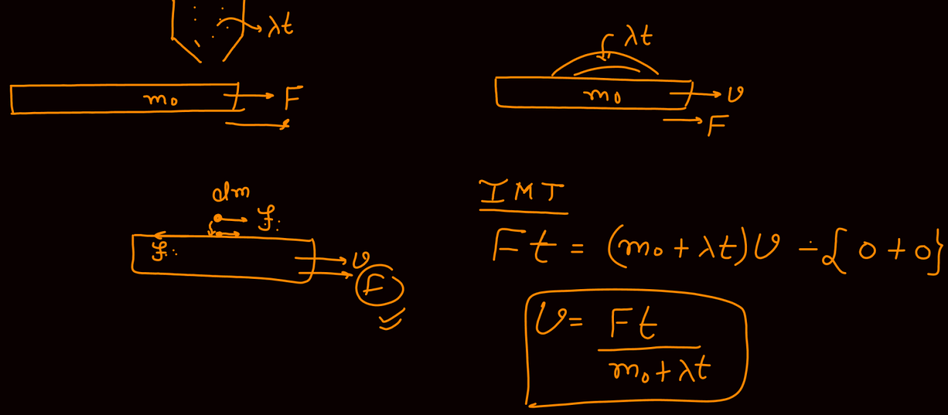 λt
m₀ F
λt
m₀ υ
F
dm
f
f υ
F
IMT
Ft = (m₀ + λt)υ - {0 + 0}
υ = Ft / m₀ + λt